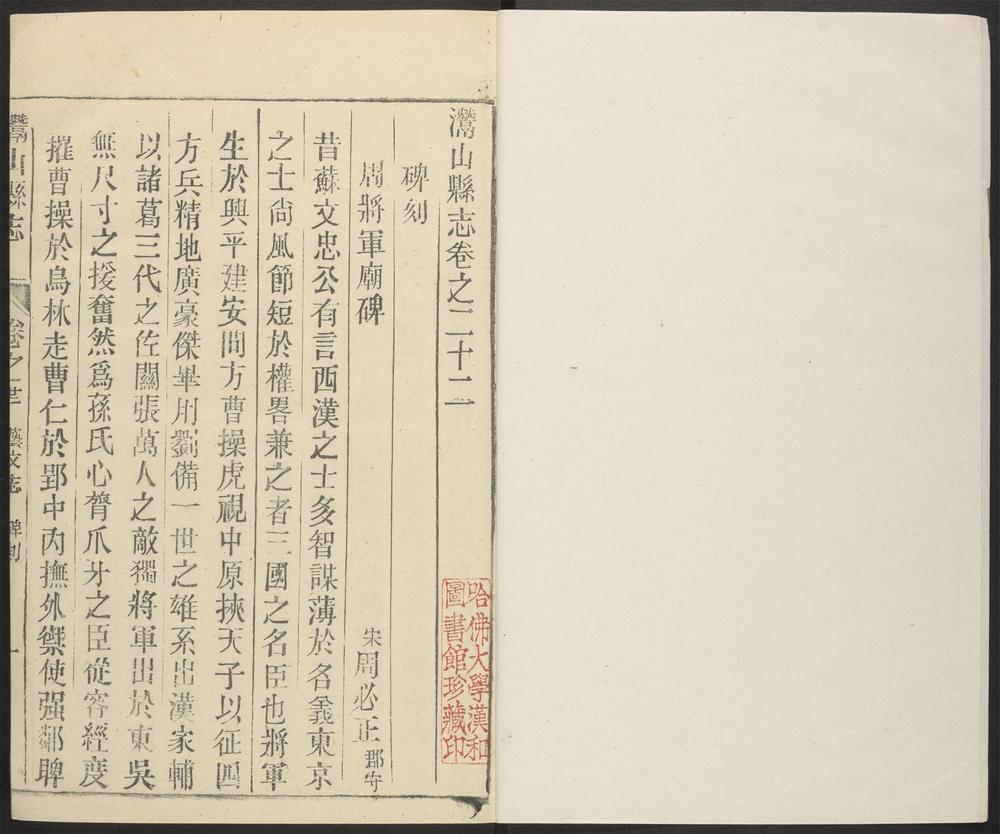 灊山縣志卷之二十二
碑刻
周將軍廟碑
宋周必正郡守
昔蘇文忠公有言西漢之士多智謀薄於名義東京
之士尙風節短於權畧兼之者三國之名臣也將軍
生於興平建安間方曹操虎視中原挾天子以征四
方兵精地廣豪傑畢用劉備一世之雄系出漢家輔
以諸葛三代之佐關張萬人之敵獨將軍出於東吳
無尺寸之援奮然爲孫氏心膂爪牙之臣從容經度
摧曹操於烏林走曹仁於郢中內撫外禦使强鄰睥
灊山縣志
卷之二十二 藝文志 碑刻 一
哈佛大學漢和
圖書館珍藏印